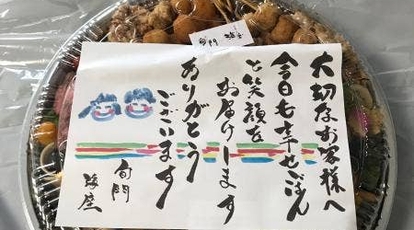 大切なお客様へ
今日も幸せごはん
と笑顔を
お届けします
ありがとう
ございます
旬門